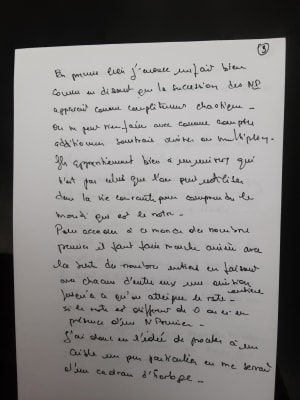 ③
En premier lieu j'avance un fait bien
connu en disant que la succession des NP
apparait comme complètement chaotique -
On ne peut rien faire avec comme compter
additionner soustraire diviser ou multiplier -
Ils appartiennent bien à un univers qui
n'est pas celui que l'on peut utiliser
dans la vie courante pour comprendre le
monde qui est le notre -
Pour accéder à ce monde des nombres
premiers il faut faire marche arrière avec
la suite des nombres entiers en faisant
avec chacun d'entre eux une division
entière
jusqu'à ce qu'on atteigne le reste -
si le reste est différent de 0 on est en
présence d'un N Premier -
J'ai donc eu l'idée de procéder à un
crible un peu particulier en me servant
d'un cadran d'horloge -